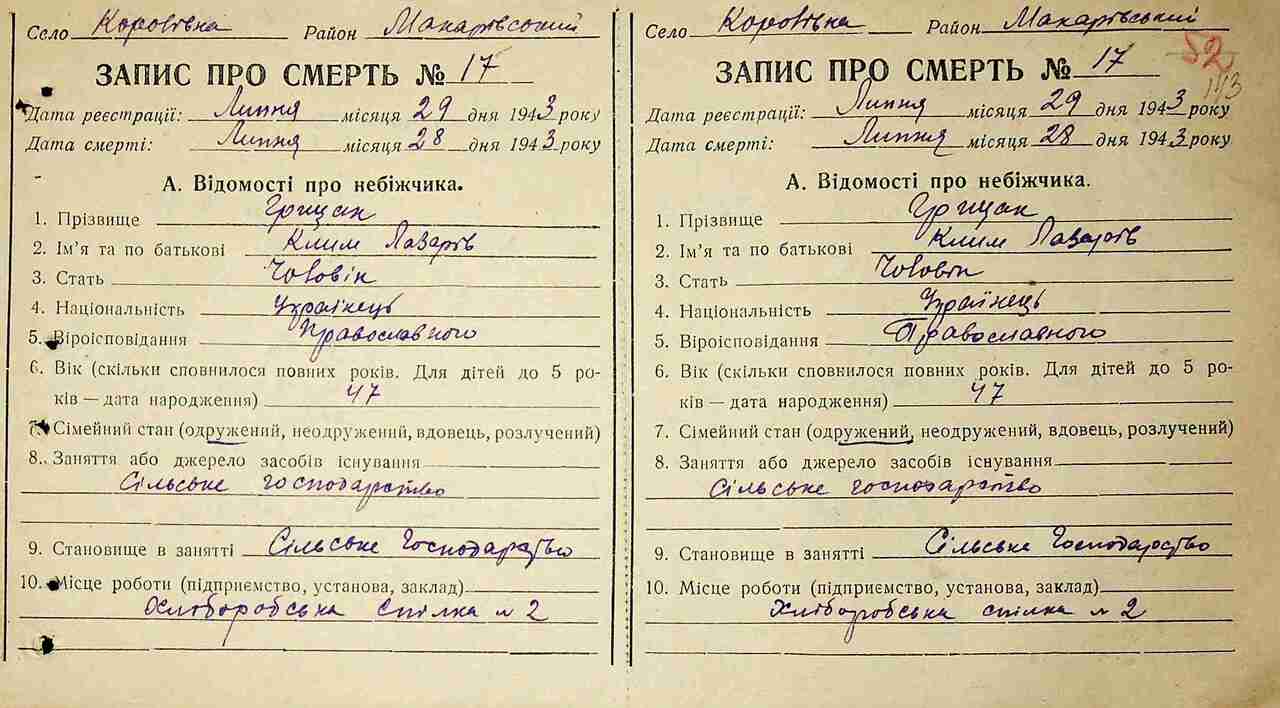 Село Коровівка Район Макарівський
ЗАПИС ПРО СМЕРТЬ № 17
Дата реєстрації: Липня місяця 29 дня 1943 року
Дата смерті: Липня місяця 28 дня 1943 року
А. Відомості про небіжчика.
1. Прізвище Грищак
2. Ім'я та по батькові Клим Лазарів
3. Стать Чоловік
4. Національність Українець
5. Віроісповідання Православного
6. Вік (скільки сповнилося повних років. Для дітей до 5 ро-
ків — дата народження) 47
7. Сімейний стан (одружений, неодружений, вдовець, розлучений)
8. Заняття або джерело засобів існування
Сільське господарство
9. Становище в занятті Сільське Господарство
10. Місце роботи (підприємство, установа, заклад)
Хліборобська спілка № 2
Село Коровівка Район Макарівський
ЗАПИС ПРО СМЕРТЬ № 17
52
113
Дата реєстрації: Липня місяця 29 дня 1943 року
Дата смерті: Липня місяця 28 дня 1943 року
А. Відомості про небіжчика.
1. Прізвище Грищак
2. Ім'я та по батькові Клим Лазарів
3. Стать Чоловік
4. Національність Українець
5. Віроісповідання Православного
6. Вік (скільки сповнилося повних років. Для дітей до 5 ро-
ків — дата народження) 47
7. Сімейний стан (одружений, неодружений, вдовець, розлучений)
8. Заняття або джерело засобів існування
Сільське господарство
9. Становище в занятті Сільське Господарство
10. Місце роботи (підприємство, установа, заклад)
Хліборобська спілка № 2